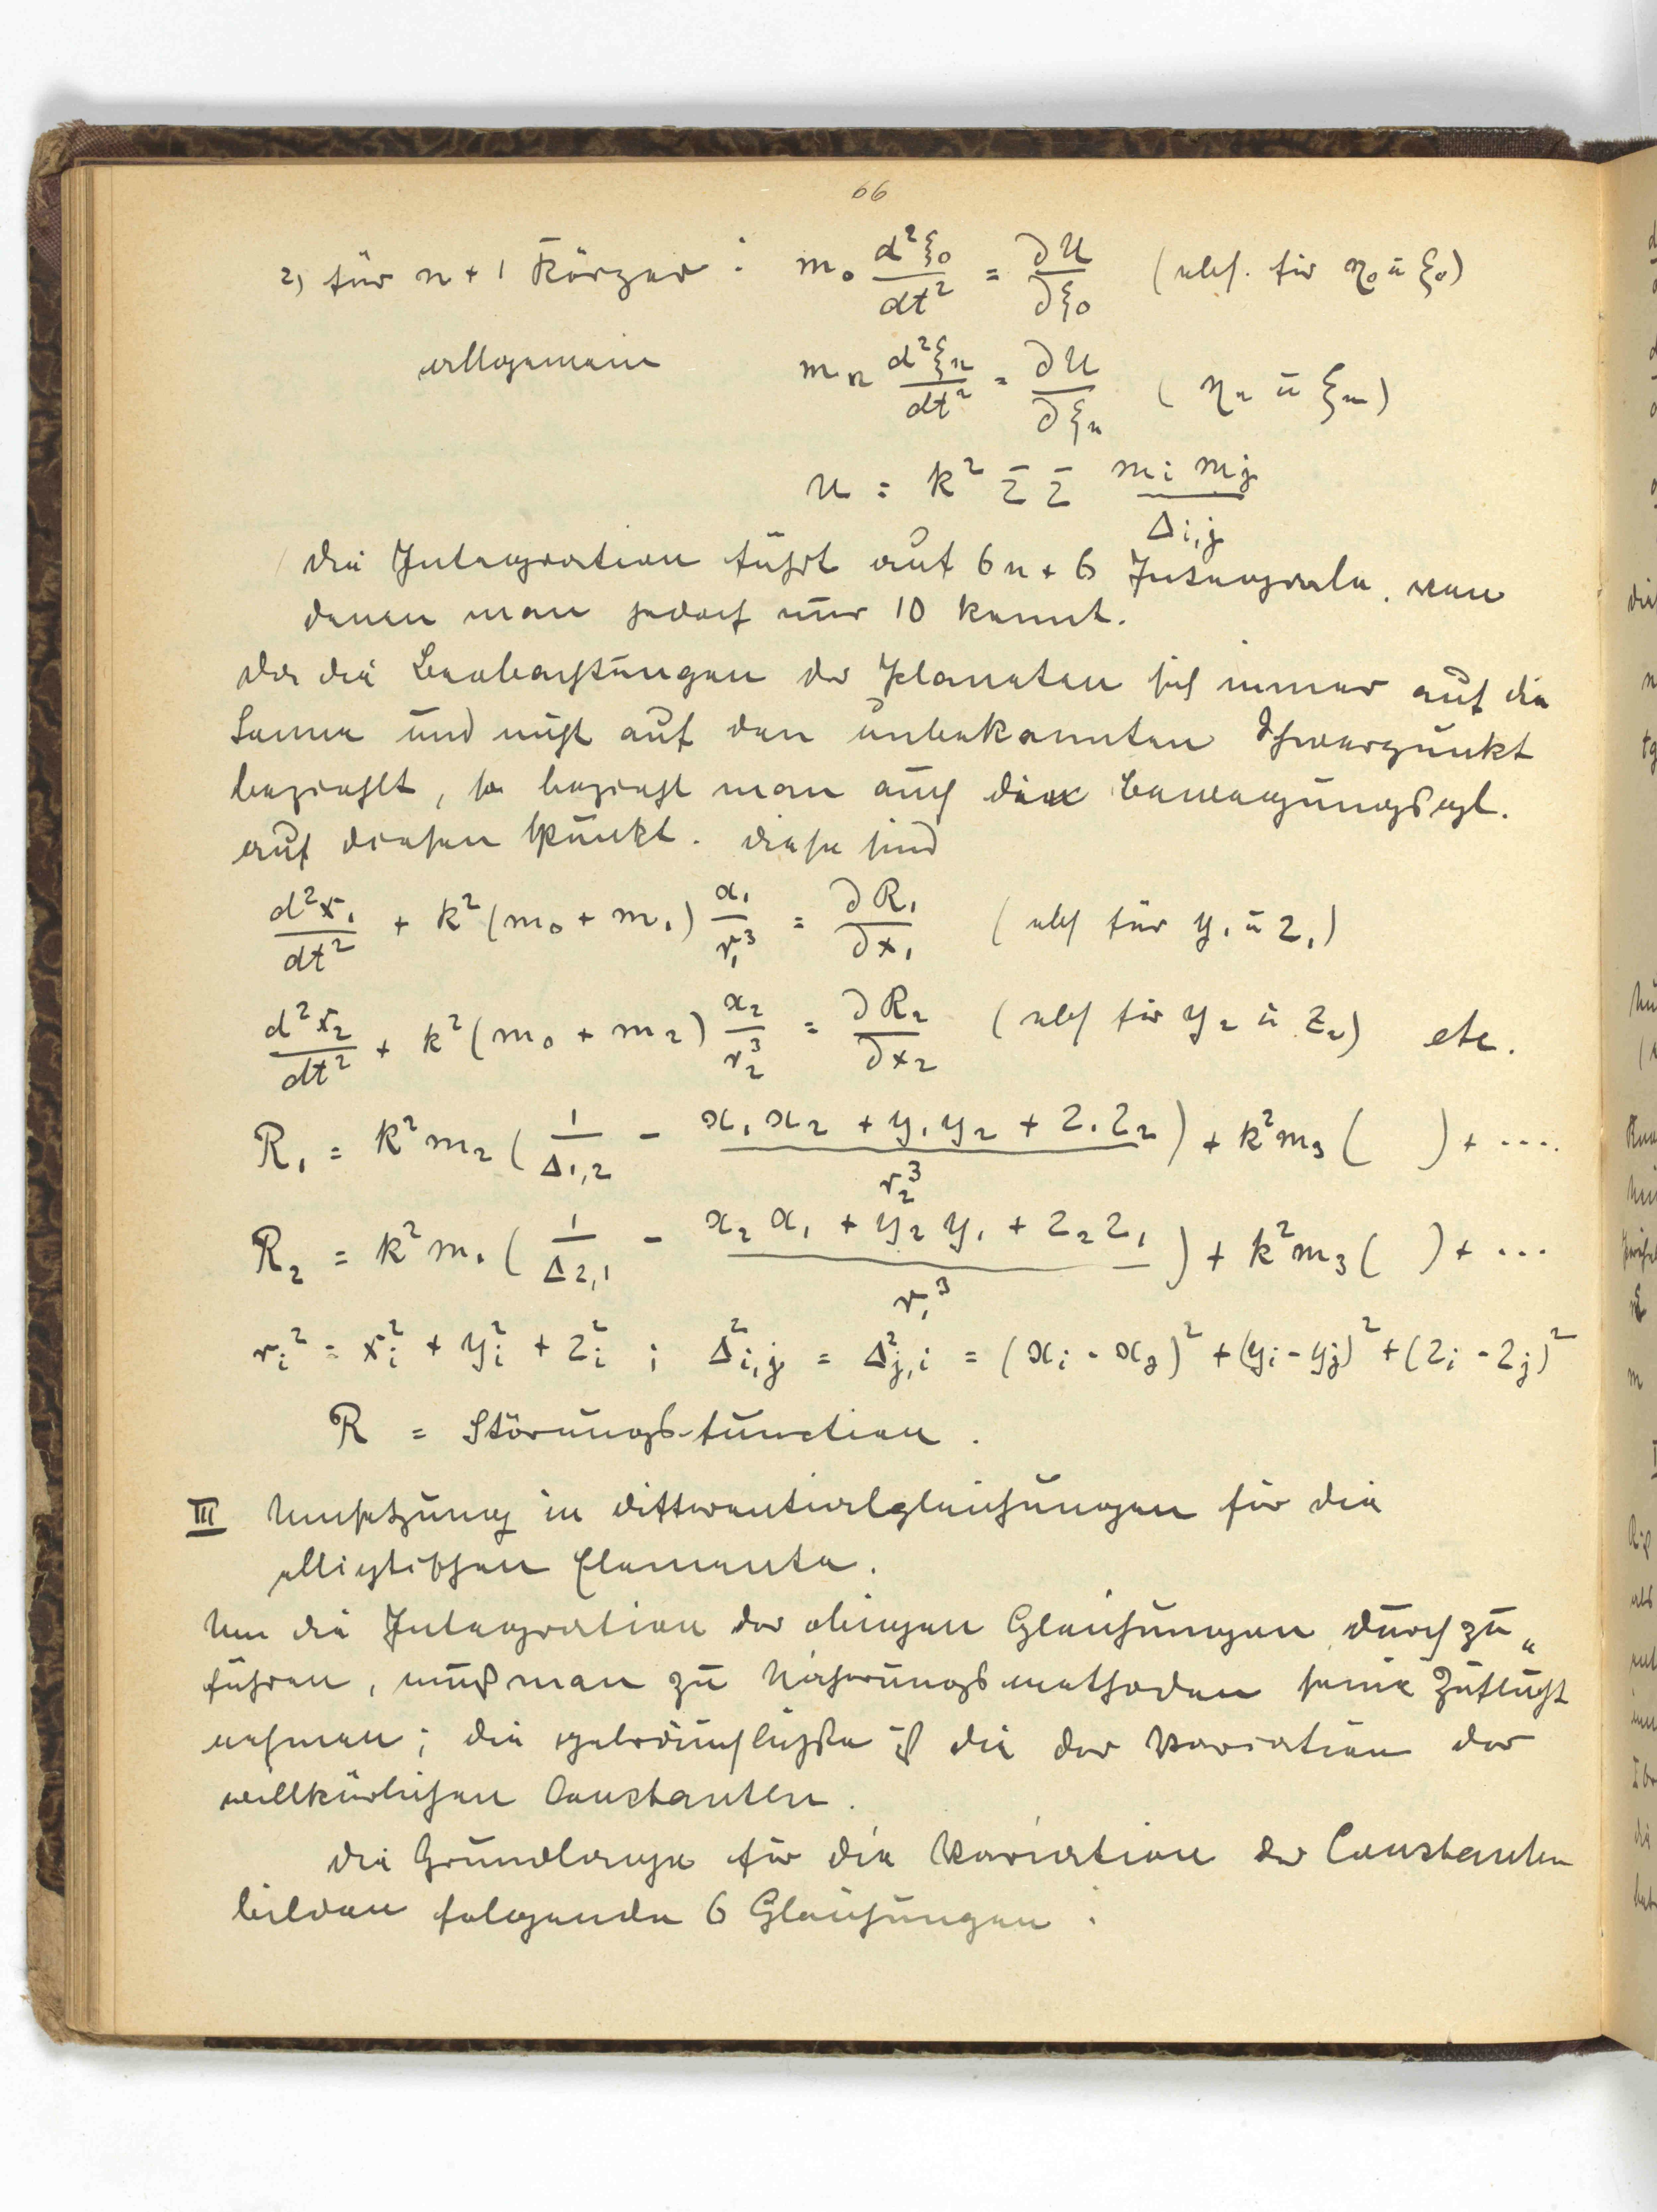 66
2) für n + 1 Körper : m₀ d²ξ₀/dt² = ∂U/∂ξ₀ (ebs. für η₀ u ξ₀)
allgemein mₙ d²ξₙ/dt² = ∂U/∂ξₙ ( ηₙ u ξₙ)
U = k² Σ Σ mᵢ mⱼ / Δᵢ,ⱼ
Die Integration führt auf 6n + 6 Integrale, von
denen man jedoch nur 10 kennt.
Da die Beobachtungen der Planeten sich immer auf die
Sonne und nicht auf den unbekannten Schwerpunkt
bezieht, so bezieht man auch die Bewegungsgl.
auf diesen Punkt. Diese sind
d²x₁/dt² + k² (m₀ + m₁) x₁/r₁³ = ∂R₁/∂x₁ (ebs für y₁ u z₁)
d²x₂/dt² + k² (m₀ + m₂) x₂/r₂³ = ∂R₂/∂x₂ (ebs für y₂ u z₂) etc.
R₁ = k² m₂ ( 1/Δ₁,₂ - x₁ x₂ + y₁ y₂ + z₁ z₂ / r₂³ ) + k² m₃ ( ) + ....
R₂ = k² m₁ ( 1/Δ₂,₁ - x₂ x₁ + y₂ y₁ + z₂ z₁ / r₁³ ) + k² m₃ ( ) + ...
rᵢ² = xᵢ² + yᵢ² + zᵢ² ; Δ²ᵢ,ⱼ = Δ²ⱼ,ᵢ = (xᵢ - xⱼ)² + (yᵢ - yⱼ)² + (zᵢ - zⱼ)²
R = Störungsfunction.
III Umsetzung in Differentialgleichungen für die
elliptischen Elemente.
Um die Integration der obigen Gleichungen durchzu„
führen, muß man zu Näherungsmethoden seine Zuflucht
nehmen; die gebräuchlichste ist die der Variation der
willkürlichen Constanten.
Die Grundlage für die Variation der Constanten
bilden folgende 6 Gleichungen :